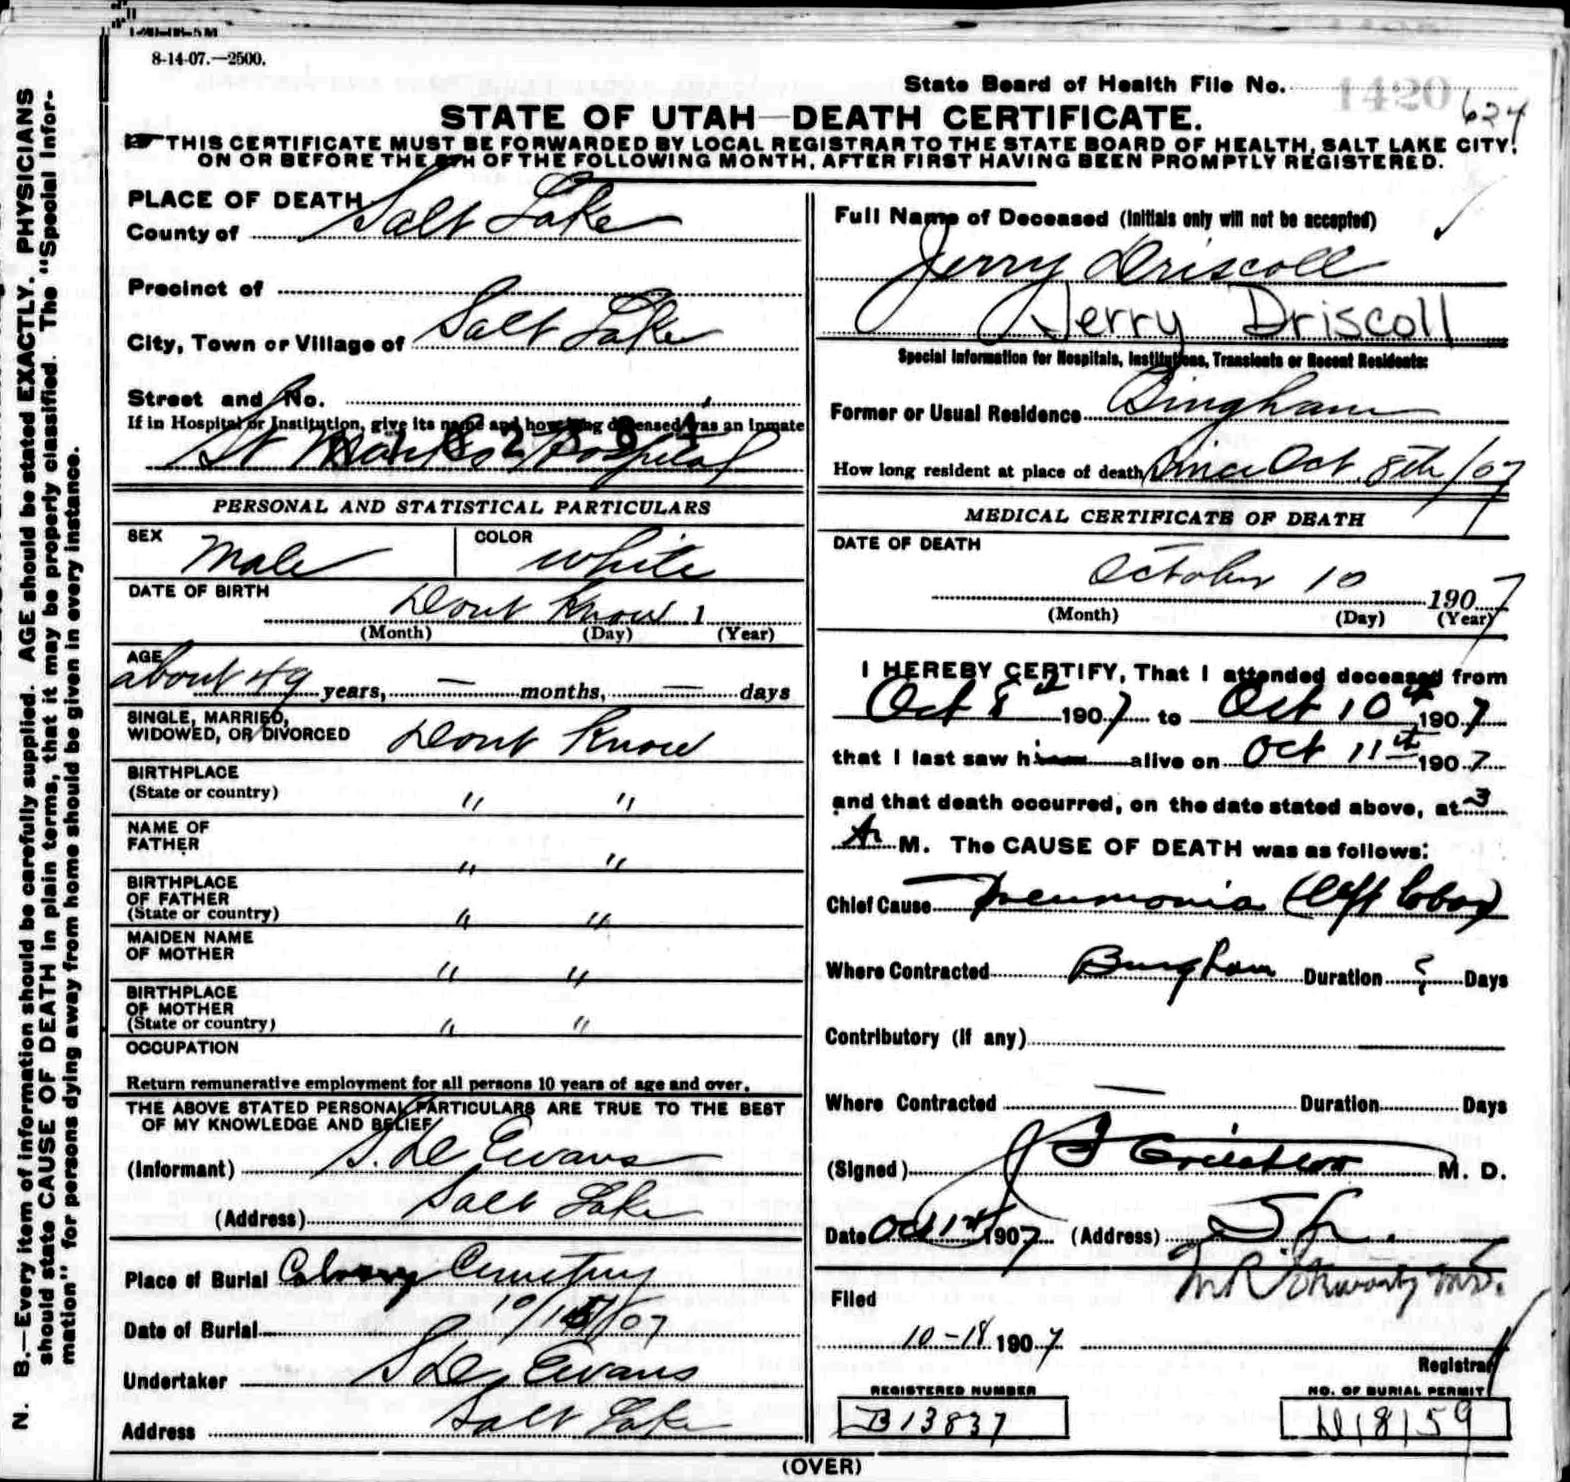 8-14-07.—2500.
State Board of Health File No. 1420
624
STATE OF UTAH—DEATH CERTIFICATE.
THIS CERTIFICATE MUST BE FORWARDED BY LOCAL REGISTRAR TO THE STATE BOARD OF HEALTH, SALT LAKE CITY,
ON OR BEFORE THE 5TH OF THE FOLLOWING MONTH, AFTER FIRST HAVING BEEN PROMPTLY REGISTERED.
N. B.—Every item of information should be carefully supplied. AGE should be stated EXACTLY. PHYSICIANS
should state CAUSE OF DEATH in plain terms, that it may be properly classified. The "Special Infor-
mation" for persons dying away from home should be given in every instance.
PLACE OF DEATH
County of Salt Lake
Precinct of
City, Town or Village of Salt Lake
Street and No.
If in Hospital or Institution, give its name and how long deceased was an Inmate
St Marks Hospital
PERSONAL AND STATISTICAL PARTICULARS
SEX Male COLOR White
DATE OF BIRTH Dont Know 1
(Month) (Day) (Year)
AGE
about 49 years, — months, — days
SINGLE, MARRIED,
WIDOWED, OR DIVORCED Dont Know
BIRTHPLACE
(State or country) " "
NAME OF
FATHER " "
BIRTHPLACE
OF FATHER
(State or country) " "
MAIDEN NAME
OF MOTHER " "
BIRTHPLACE
OF MOTHER
(State or country) " "
OCCUPATION
Return remunerative employment for all persons 10 years of age and over.
THE ABOVE STATED PERSONAL PARTICULARS ARE TRUE TO THE BEST
OF MY KNOWLEDGE AND BELIEF
(Informant) S. De Evans
(Address) Salt Lake
Place of Burial Calvary Cemetery
Date of Burial 10/15/07
Undertaker S De Evans
Address Salt Lake
Full Name of Deceased (Initials only will not be accepted)
Jerry Driscoll
Jerry Driscoll
Special Information for Hospitals, Institutions, Transients or Recent Residents:
Former or Usual Residence Bingham
How long resident at place of death Since Oct. 8th/07
MEDICAL CERTIFICATE OF DEATH
DATE OF DEATH
October 10 1907
(Month) (Day) (Year)
I HEREBY CERTIFY, That I attended deceased from
Oct 8th 1907 to Oct 10th 1907
that I last saw him alive on Oct 11th 1907
and that death occurred, on the date stated above, at 3
A M. The CAUSE OF DEATH was as follows:
Chief Cause Pneumonia (left lobar)
Where Contracted Bingham Duration ? Days
Contributory (if any)
Where Contracted — Duration Days
(Signed) M. D.
Date Oct 1907 (Address) S L.
Filed M R Stewart M.D.
10-18 1907
Registrar
REGISTERED NUMBER
B13837
NO. OF BURIAL PERMIT
D18159
(OVER)